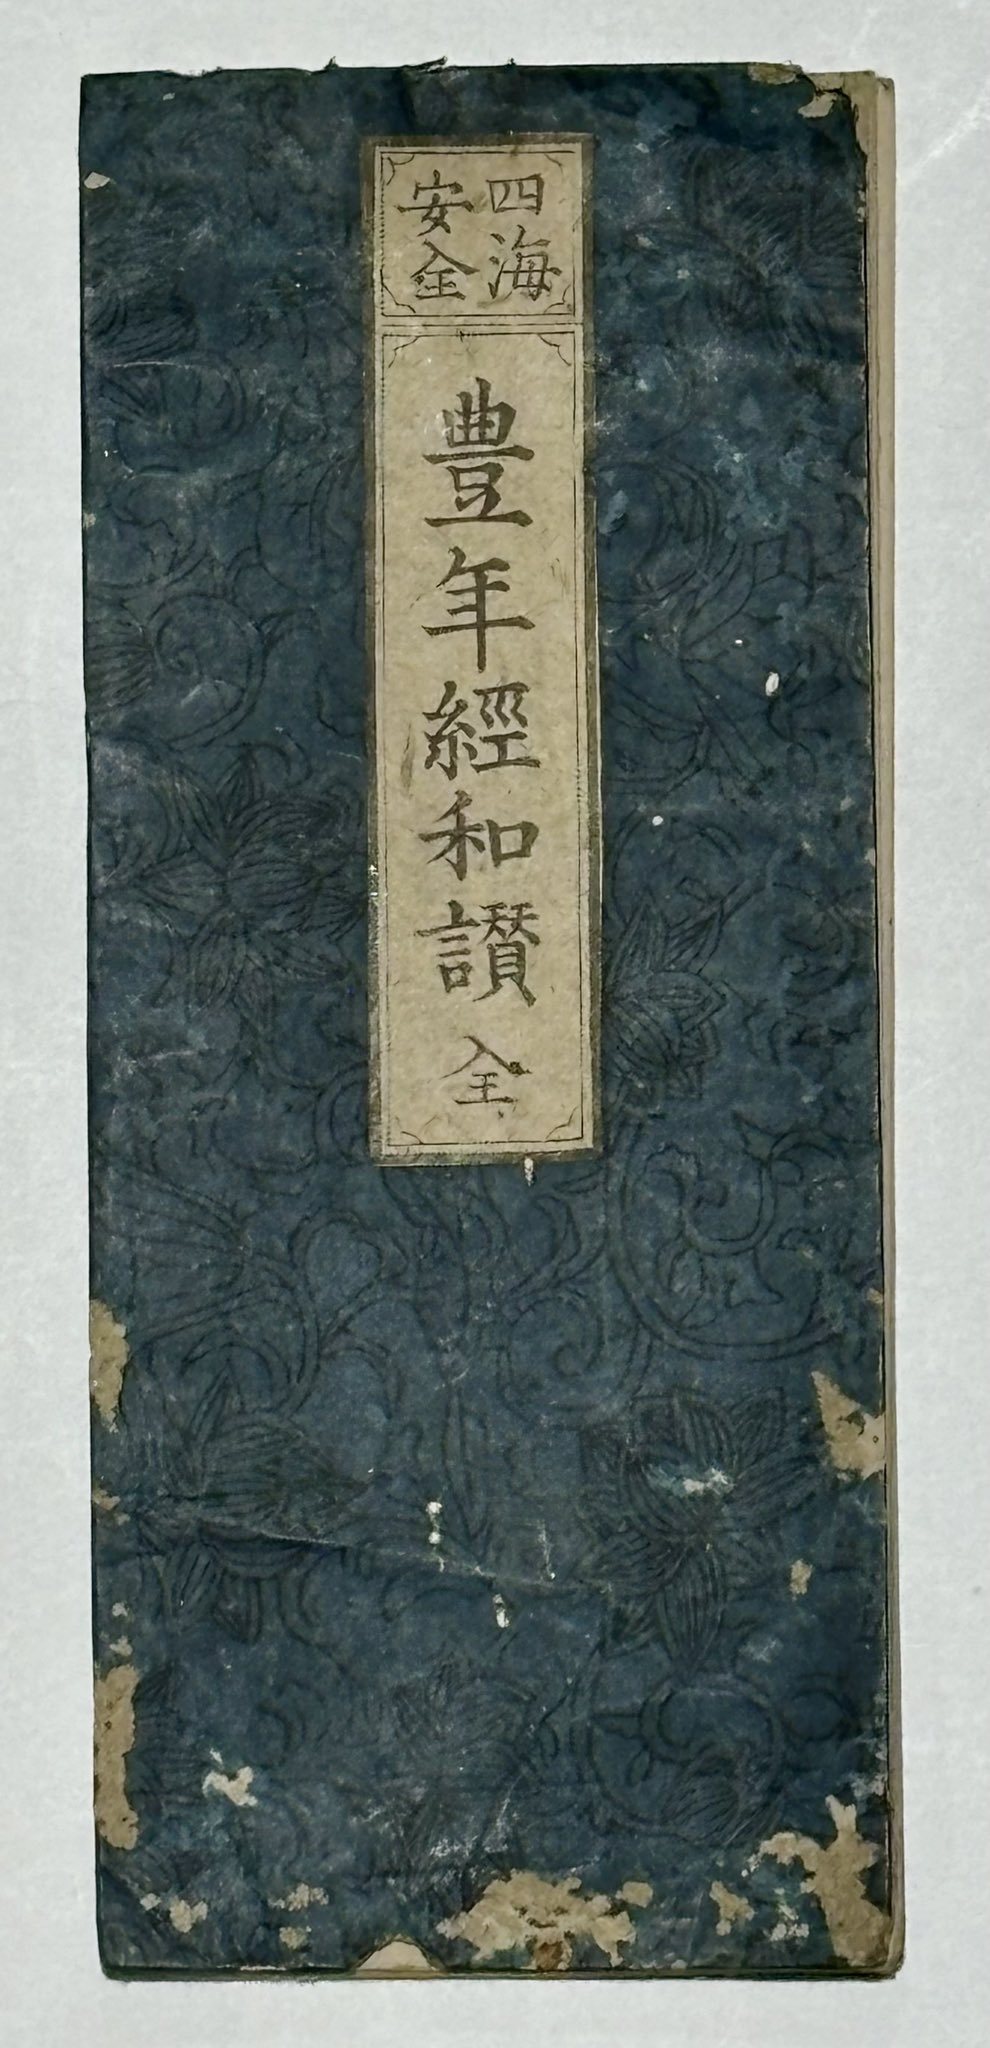 四海
安全
豊年經和讃 全